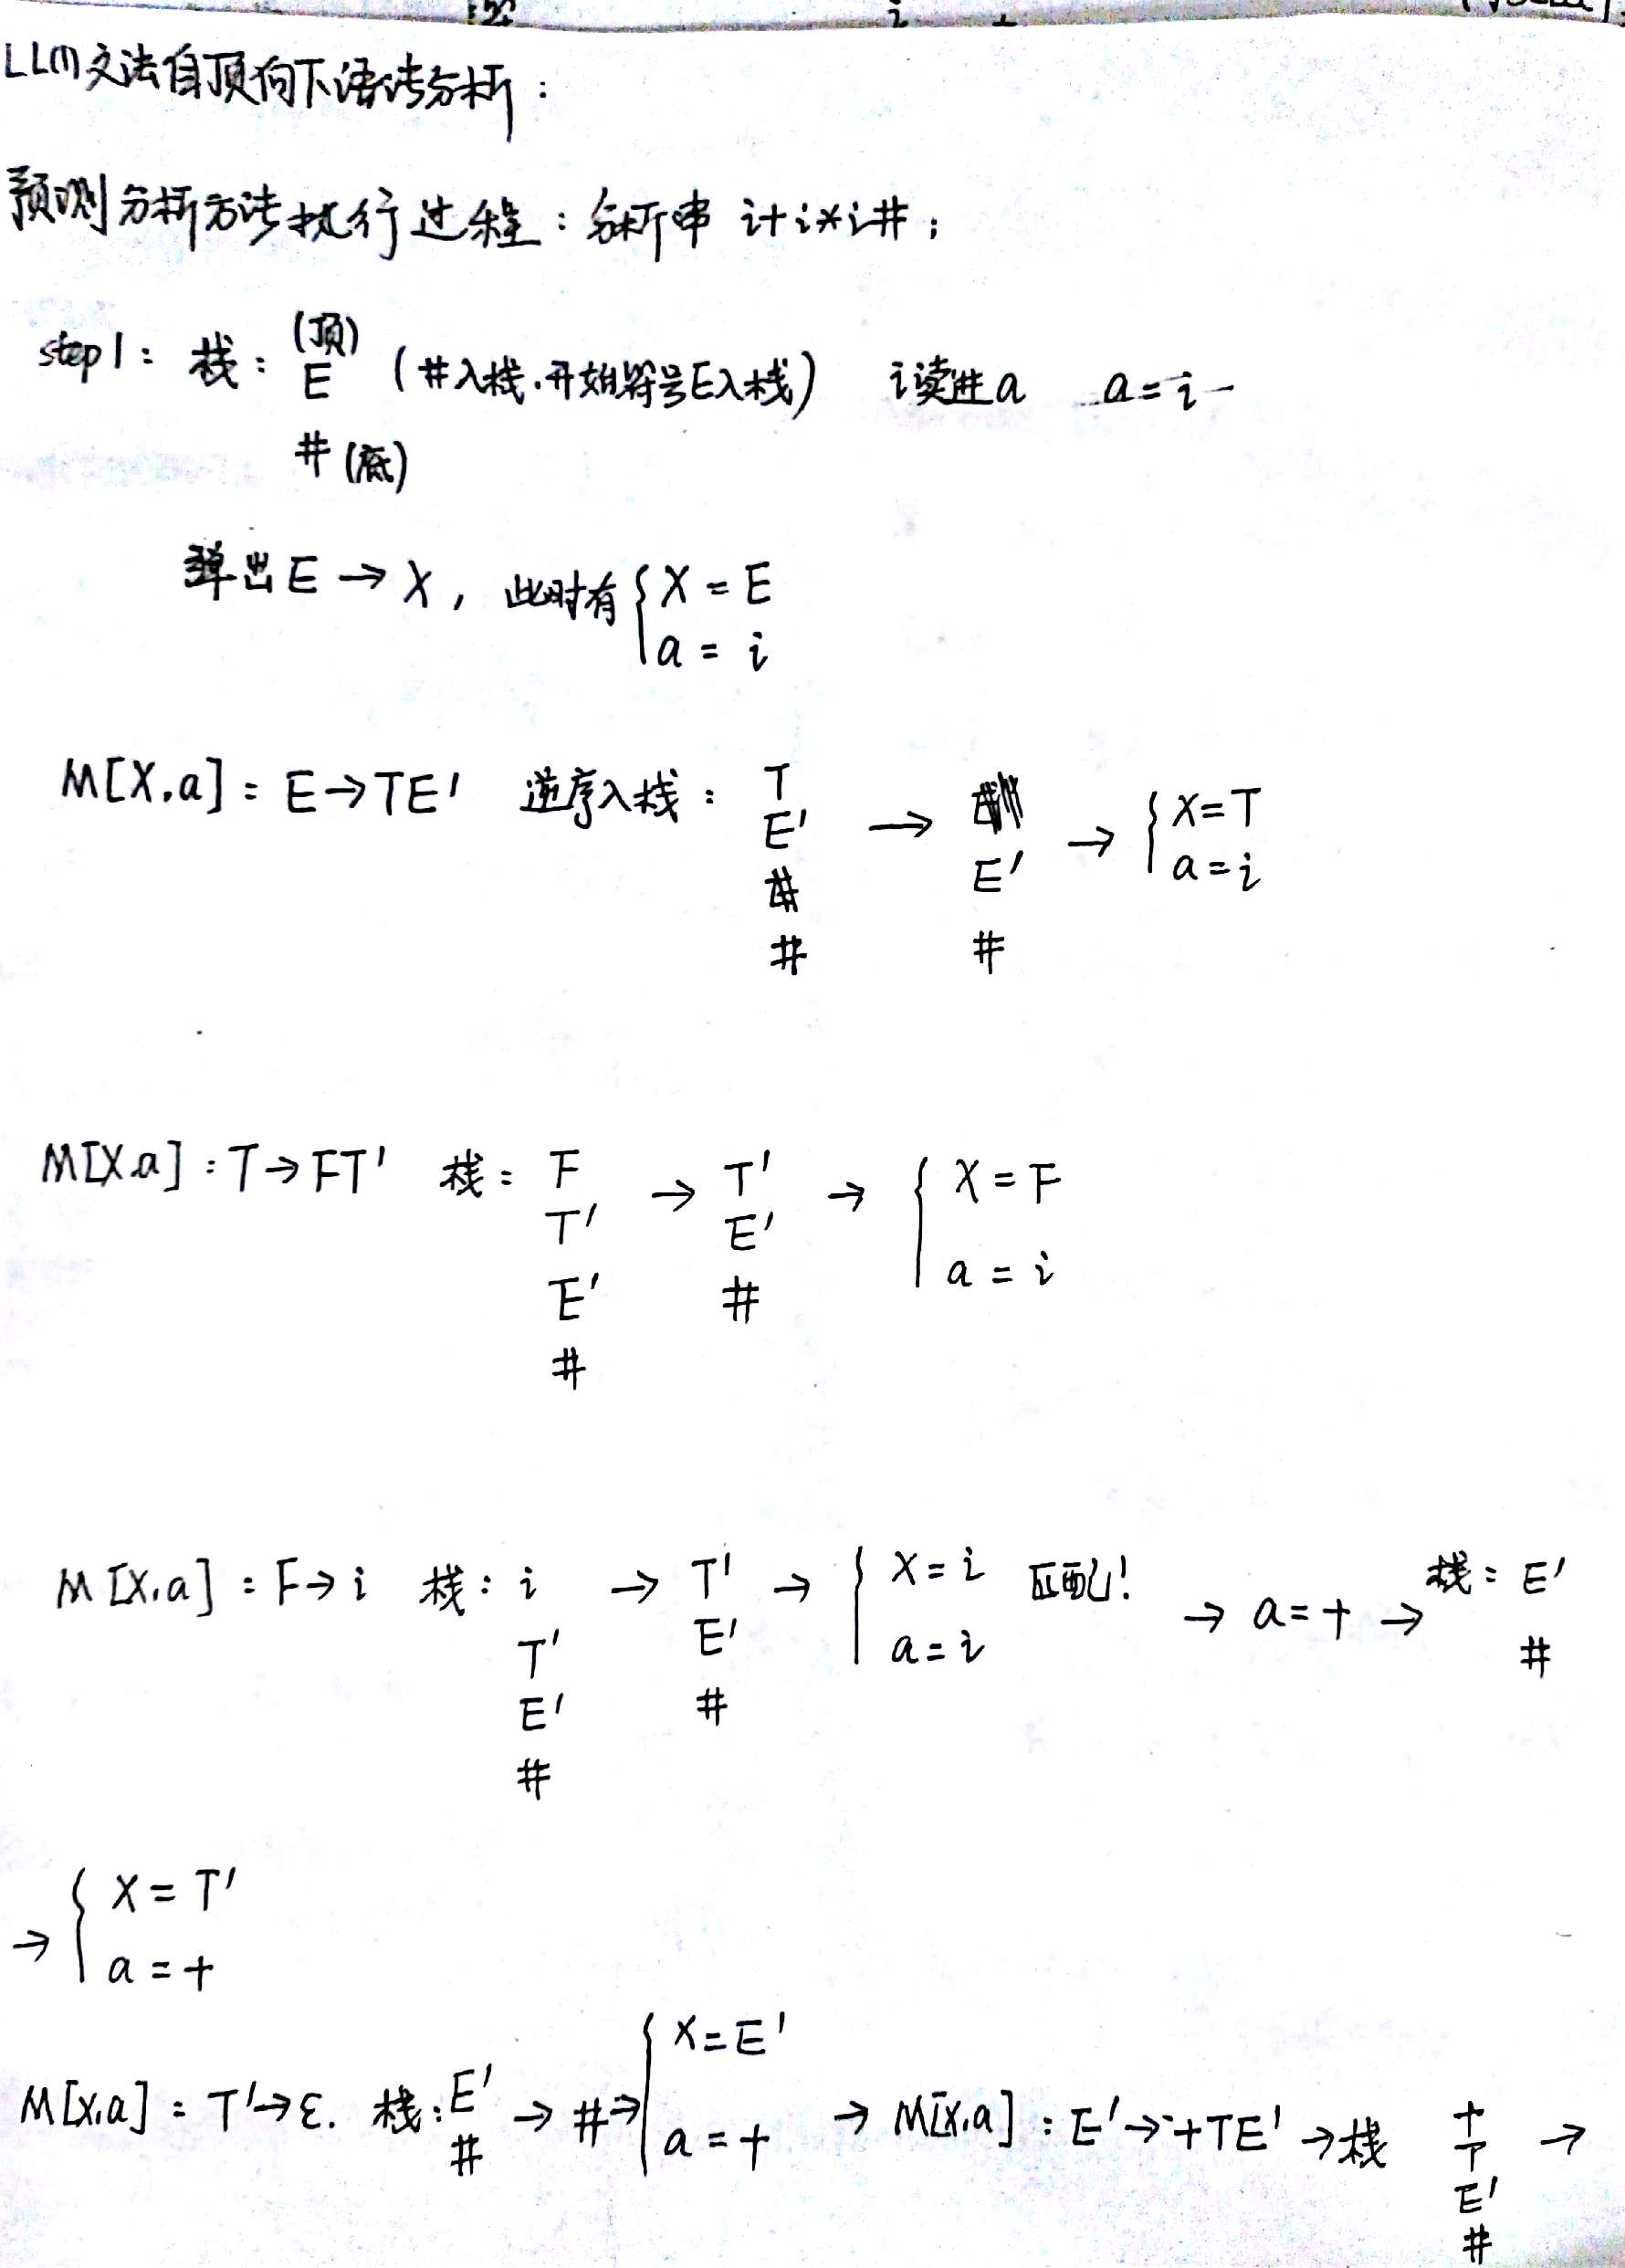 LL(1)文法自顶向下语法分析：
预测分析方法执行过程：分析串 i+i*i#；
step1：栈：(顶)
E （#入栈.开始符号E入栈） i读进a a=i
# (底)
弹出E→X，此时有{X=E
a=i
M[X,a]：E→TE' 逆序入栈：T
E' → → {X=T
E' a=i
# #
M[X,a]：T→FT' 栈：F → T' → {X=F
T' E'
E' # a=i
#
M[X,a]：F→i 栈：i → T' → {X=i 匹配！ → a=+ → 栈：E'
T' E' a=i #
E' #
#
→ {X=T'
a=+
{X=E'
M[X,a]：T'→ε. 栈：E' → # → a=+ → M[X,a]：E'→+TE' → 栈 + →
# T
E'
#